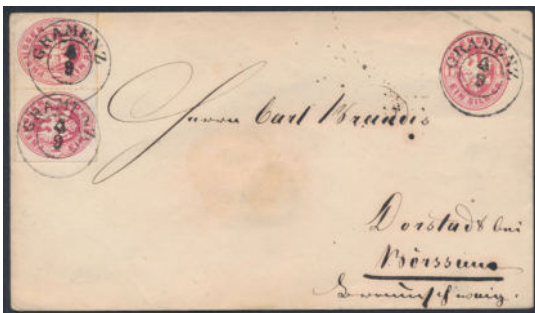 GRAMENZ
4
9
GRAMENZ
4
9
GRAMENZ
4
9
EIN SILBER
Herrn Carl Brandis
Dorstadt bei
Börssum
Braunschweig.